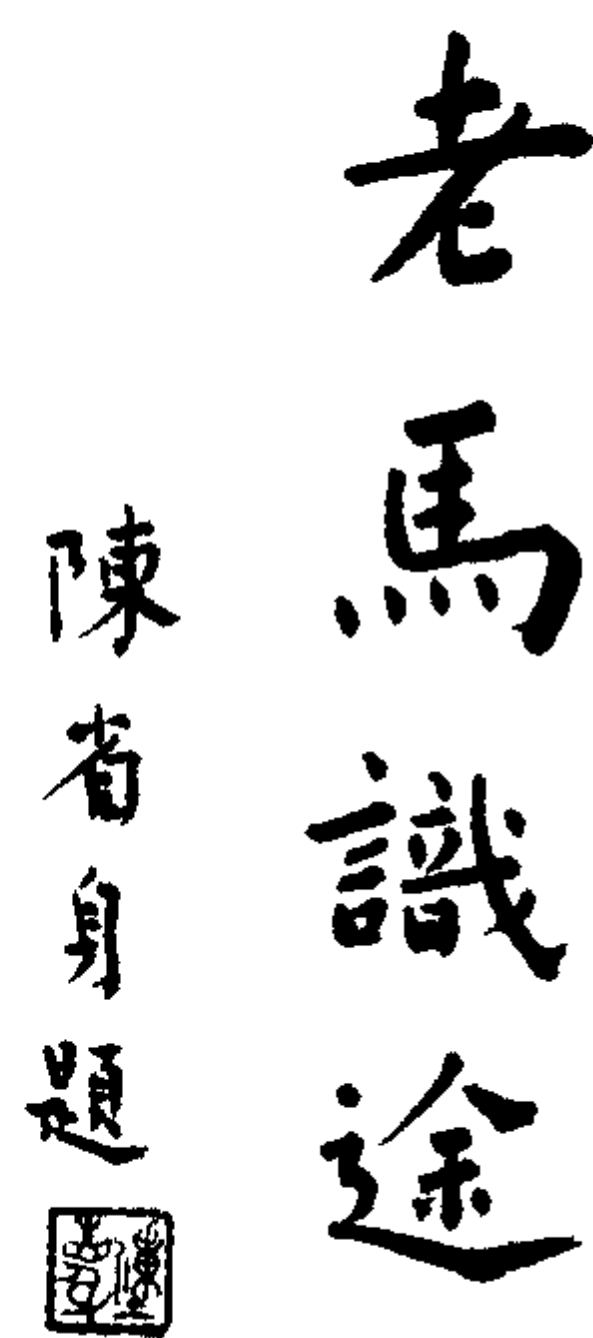 老馬識途
陳省身題